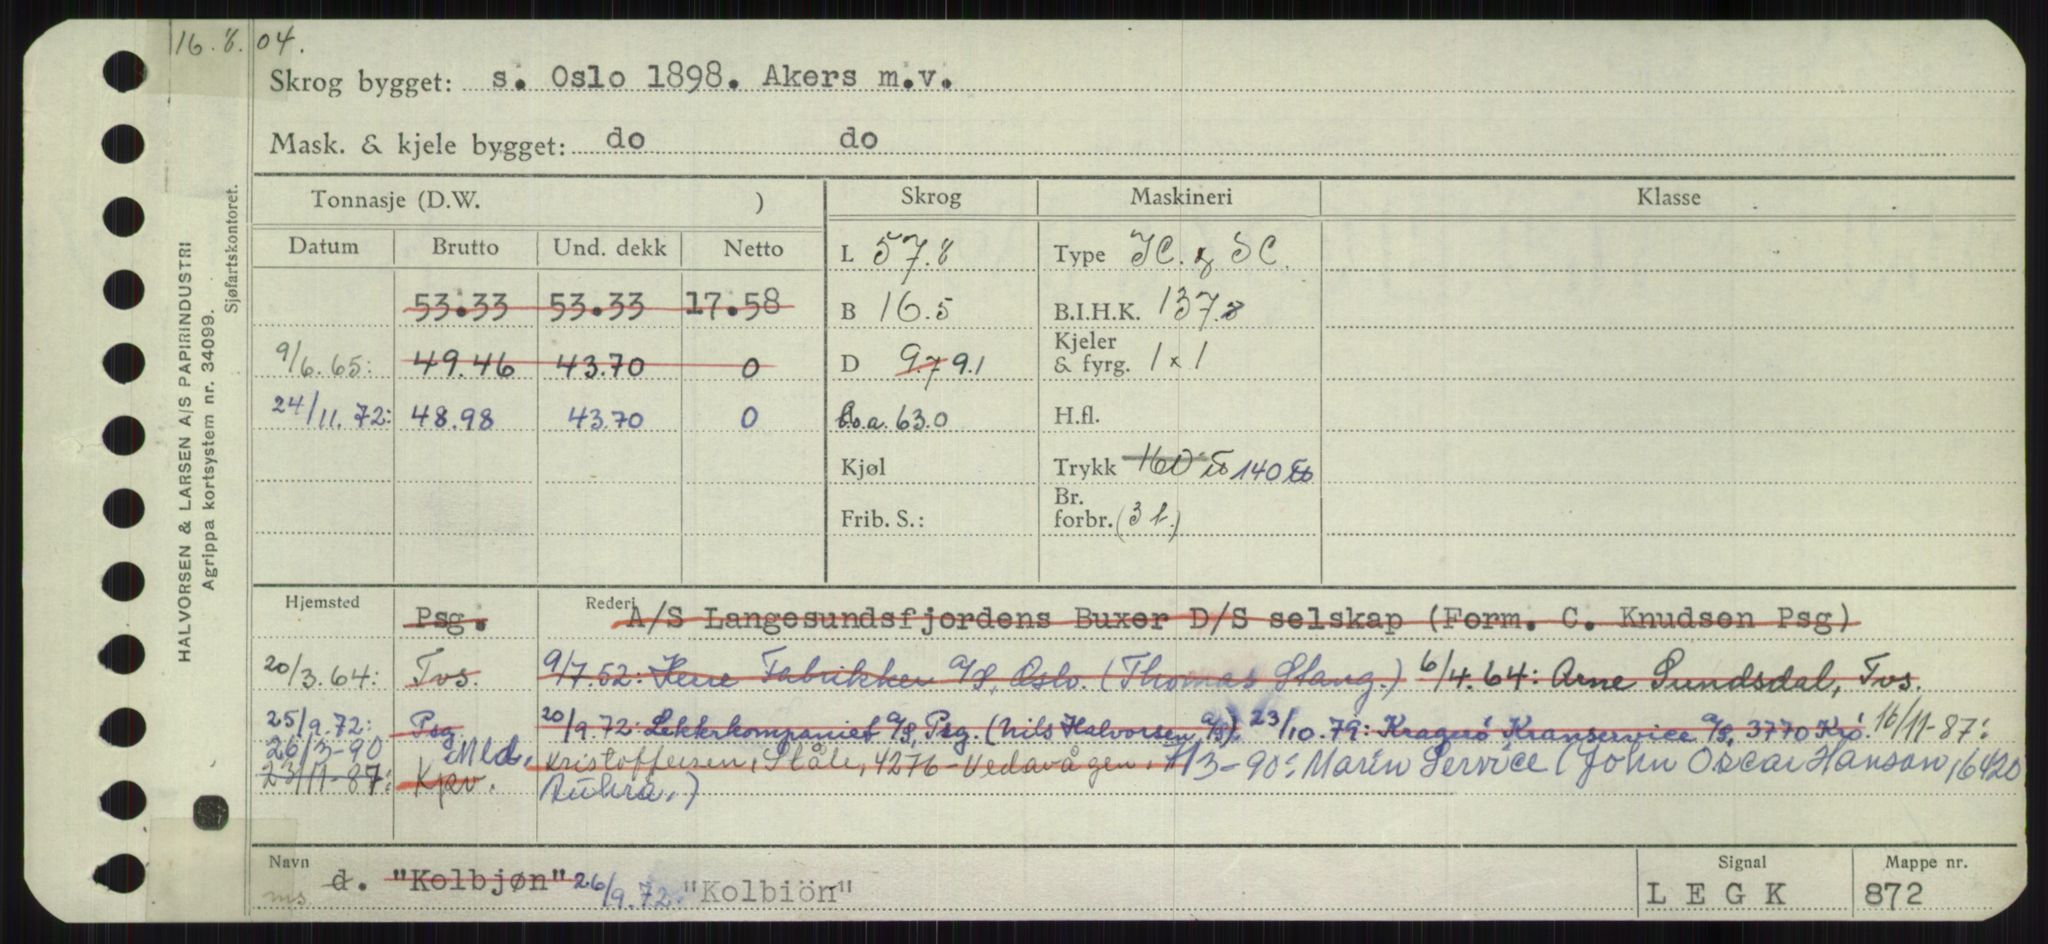 16.8.04.
Skrog bygget: s. Oslo 1898. Akers m.v.
Mask. & kjele bygget: do do
Tonnasje (D.W. ) Skrog Maskineri Klasse
Datum Brutto Und. dekk Netto
L 57.8 Type JC. & SC.
53.33 53.33 17.58
B 16.5 B.I.H.K. 137.8
9/6.65: 49.46 43.70 0
D 9.7 9.1 Kjeler & fyrg. 1 x 1
24/11.72: 48.98 43.70 0
l.o.a. 63.0 H.fl.
Kjøl Trykk 160 lb 140 lb
Frib. S.: Br. forbr. (3 t.)
Hjemsted Rederi
Psg. A/S Langesundsfjordens Buxer D/S selskap (Form. C. Knudsen Psg)
20/3.64: Tvs. 9/7.52: Fabrikker A/S, Oslo. (Thomas Stang.) 6/4.64: Arne Sundsdal, Tvs.
25/9.72: Psg 20/9.72: Lekterkompaniet A/S, Psg. (Nils Halvorsen A/S). 23/10.79: Kragerö Kranservice A/S, 3770 Krö. 16/11-87:
26/3-90 Mld. Kristoffersen, Ståle, 4276-Vedavågen. 7/3-90: Marin Service (John Oscar Hanson, 6420
23/11-87: Kpv. Aukra.)
Navn Signal Mappe nr.
ms d. "Kolbjøn" 26/9.72: "Kolbiön" L E G K 872
HALVORSEN & LARSEN A/S PAPIRINDUSTRI
Agrippa kortsystem nr. 34099.
Sjøfartskontoret.